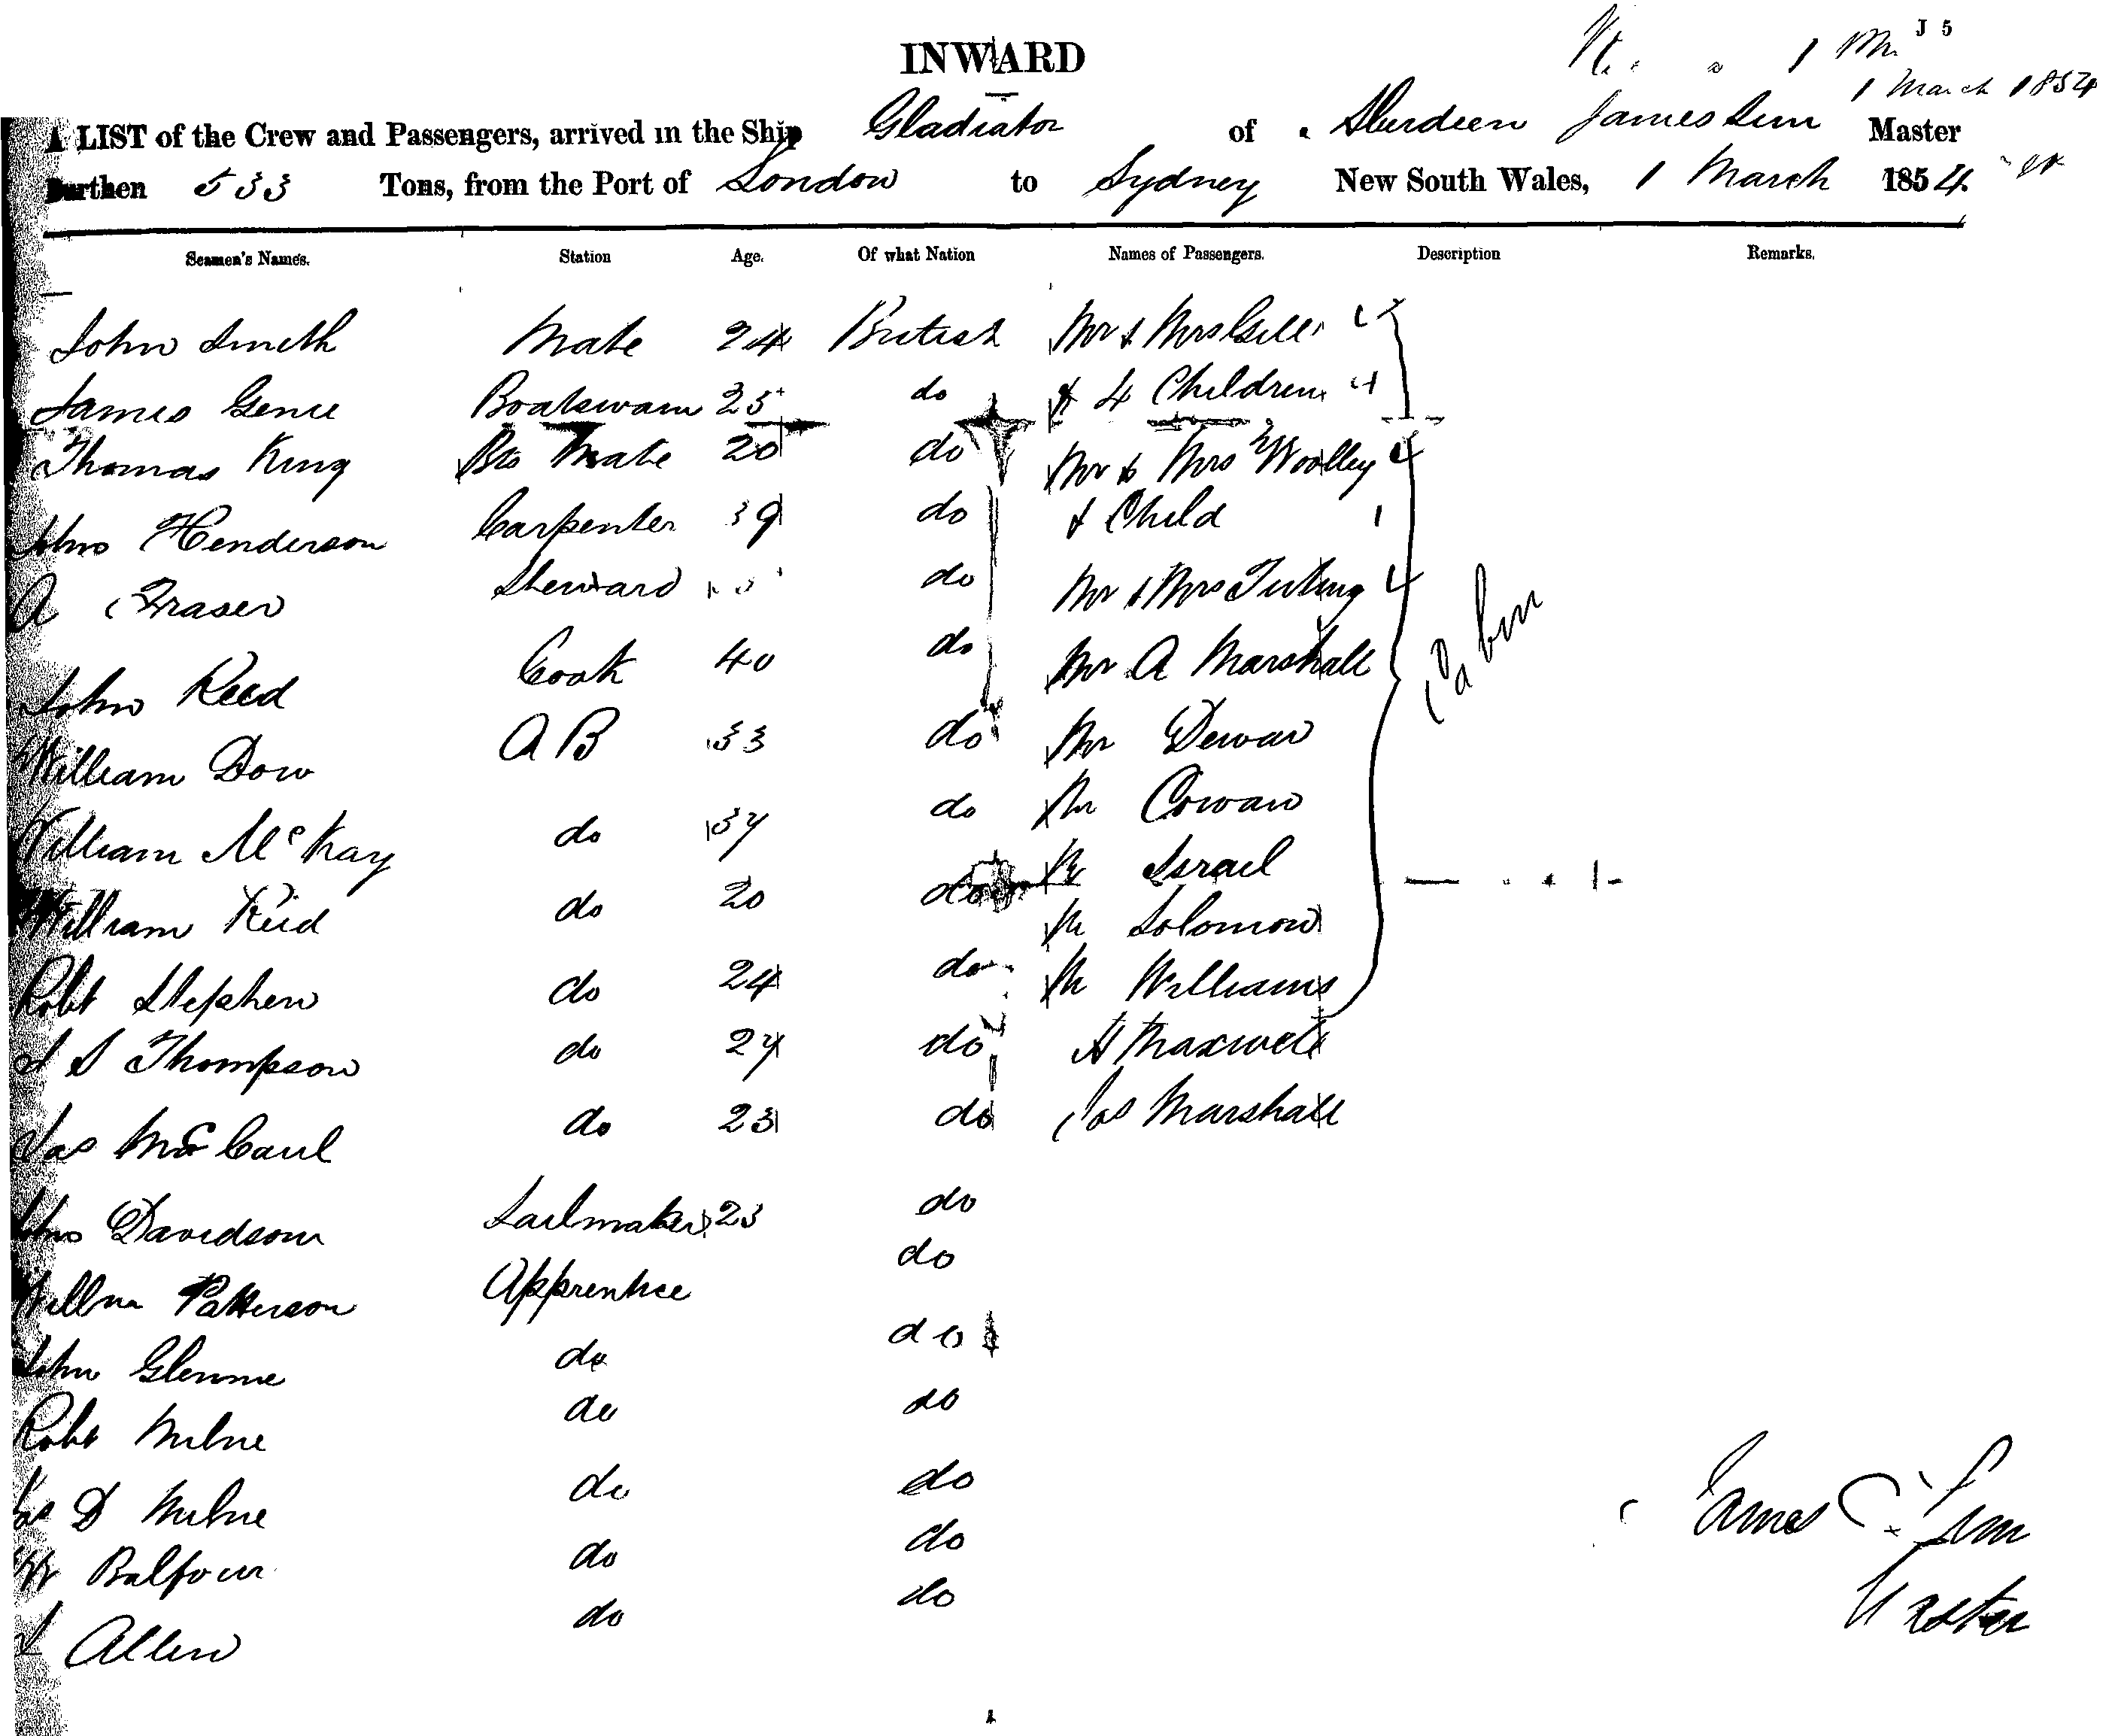 J 5
INWARD
1 March 1854
A LIST of the Crew and Passengers, arrived in the Ship Gladiator of Aberdeen James Sim Master
Burthen 533 Tons, from the Port of London to Sydney New South Wales, 1 March 1854
Seamen's Names. Station Age. Of what Nation Names of Passengers. Description Remarks.
John Smith Mate 24 British Mr & Mrs Gill
James Boatswain 25 do & 4 Children 4
Thomas King Bts Mate 20 do Mr & Mrs Woolley
Jno Henderson Carpenter 39 do & Child 1
A Fraser Steward do Mr & Mrs
John Reed Cook 40 do Mr A Marshall
Cabin
William Dow A B 33 do Mr Dewar
William McKay do 37 do Mr Cowan
William Reid do 20 do Mr Israel
Mr Solomon
Robt Stephen do 24 do Mr Williams
S Thompson do 27 do Maxwell
Jas McCaul do 23 do Jas Marshall
Jno Davidson Sailmaker 23 do
Willm Patterson Apprentice do
John Glennie do do
Robt Milne do do
Jas D Milne do do
W Balfour do do
Allen do do
James Sim
Master